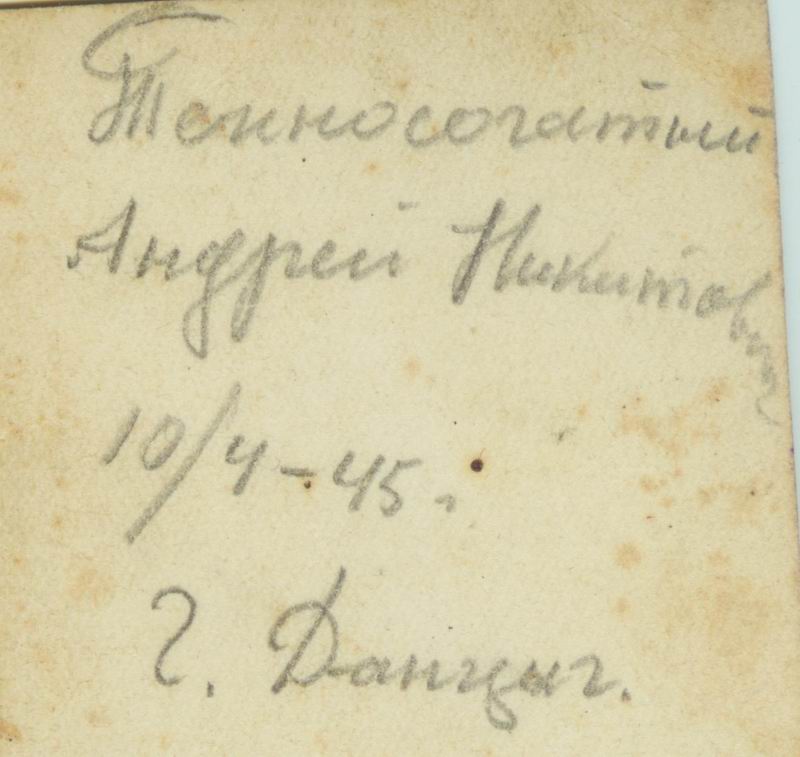 Темносогатый
Андрей Никитович
10/4-45.
г. Данциг.